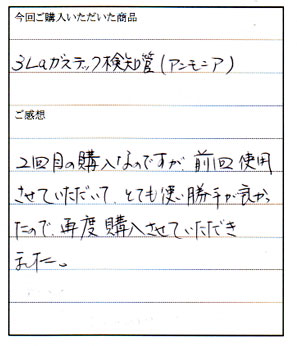 今回ご購入いただいた商品
3Laガステック検知管(アンモニア)
ご感想
2回目の購入なのですが、前回使用
させていただいて、とても使い勝手が良かっ
たので、再度購入させていただき
ました。